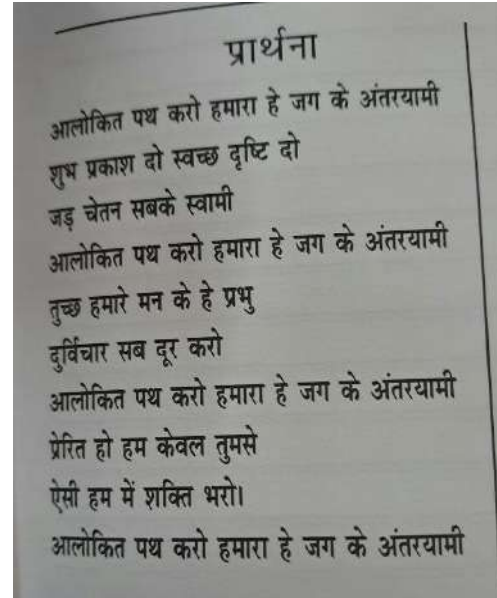 प्रार्थना
आलोकित पथ करो हमारा हे जग के अंतरयामी
शुभ प्रकाश दो स्वच्छ दृष्टि दो
जड़ चेतन सबके स्वामी
आलोकित पथ करो हमारा हे जग के अंतरयामी
तुच्छ हमारे मन के हे प्रभु
दुर्विचार सब दूर करो
आलोकित पथ करो हमारा हे जग के अंतरयामी
प्रेरित हो हम केवल तुमसे
ऐसी हम में शक्ति भरो।
आलोकित पथ करो हमारा हे जग के अंतरयामी